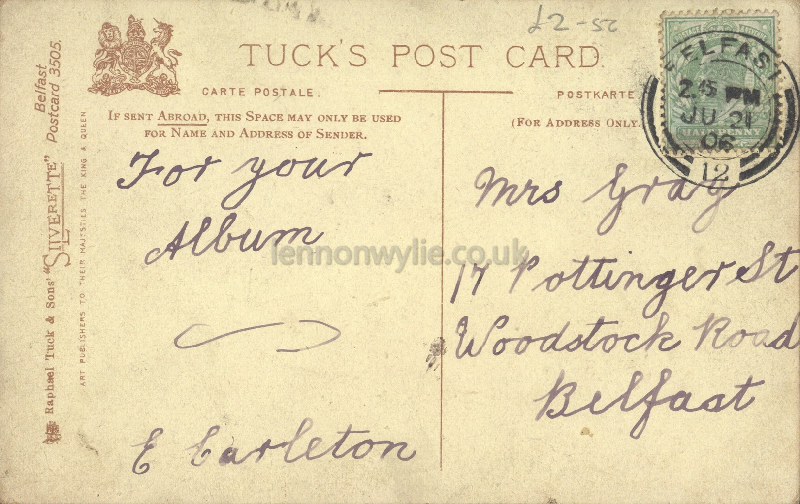 £2-50
TUCK'S POST CARD.
CARTE POSTALE.
POSTKARTE
IF SENT ABROAD, THIS SPACE MAY ONLY BE USED
FOR NAME AND ADDRESS OF SENDER.
(FOR ADDRESS ONLY.
For your
Album
E Carleton
Mrs Gray
17 Pottinger St
Woodstock Road
Belfast
BELFAST
2.45 PM
JU 21
06
12
HALFPENNY
Belfast
Postcard 3505.
Raphael Tuck & Sons' "SILVERETTE"
ART PUBLISHERS TO THEIR MAJESTIES THE KING & QUEEN
lennonwylie.co.uk